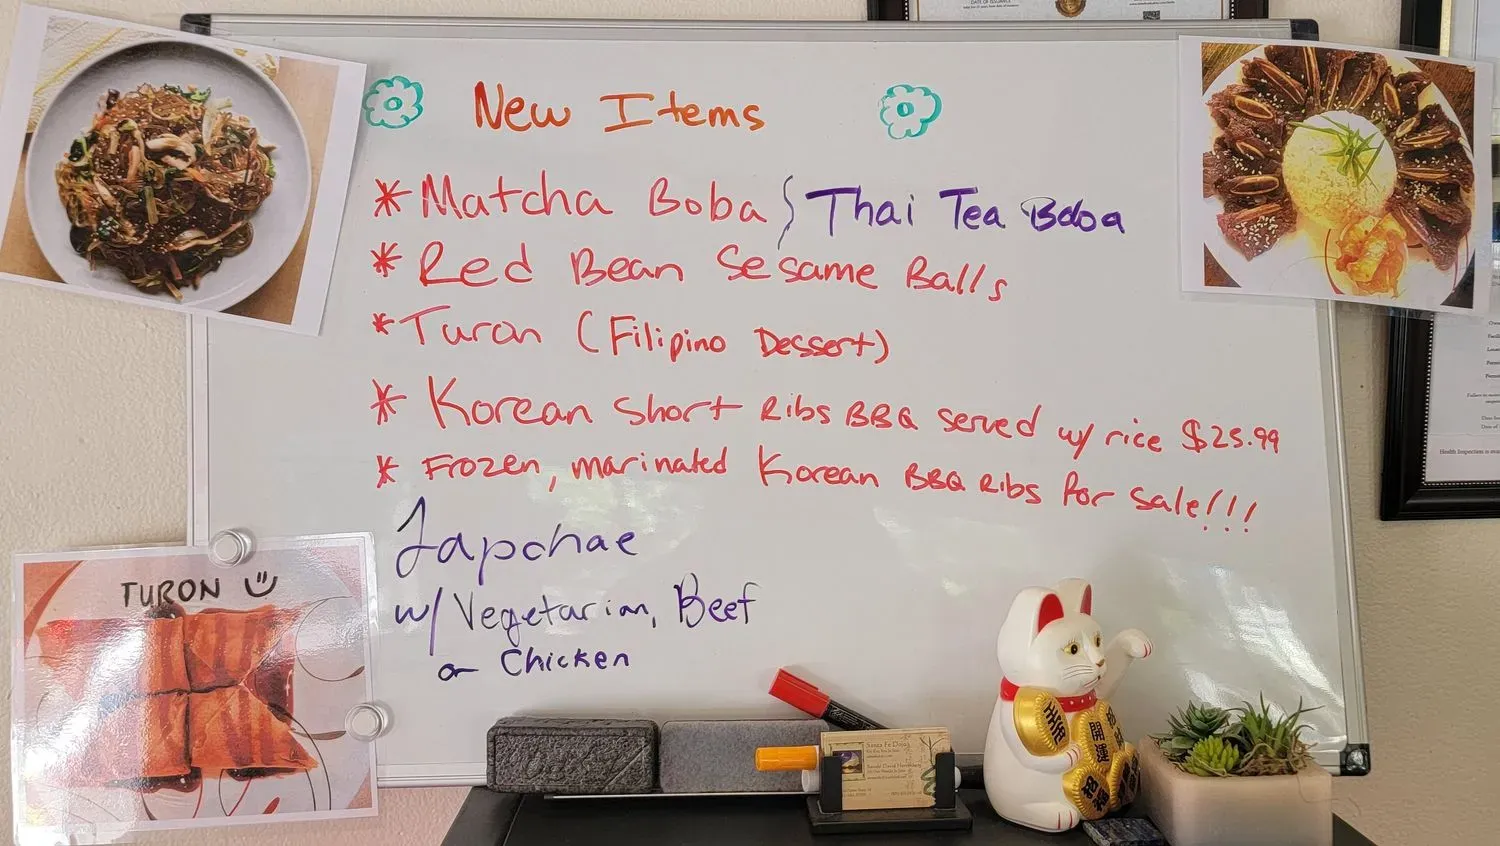 DATE OF ISSUANCE
New Items
* Matcha Boba } Thai Tea Boba
* Red Bean Sesame Balls
* Turon (Filipino Dessert)
* Korean Short Ribs BBQ served w/ rice $25.99
* Frozen, marinated Korean BBQ Ribs for Sale!!!
Japchae
w/ Vegetarian, Beef
or Chicken
TURON
Santa Fe Dojo
開運
Health Inspection is